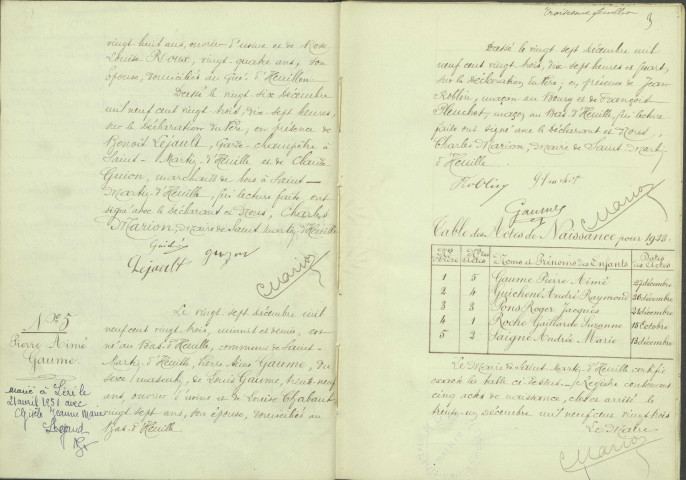 vingt-huit ans, ouvrier d'usine et de Rose
Louise Rioux, vingt-quatre ans, son
épouse, domiciliés du Gué d'Heuillon
Dressé le vingt six décembre
mil neuf cent vingt trois, dix sept heures,
sur la déclaration du Père, en présence de
Benoît Lejault, Garde-champêtre à
Saint-Martin-d'Heuille et de Claude
Guion, marchand de bois à Saint-
Martin d'Heuille, qui lecture faite, ont
signé avec le déclarant et Nous, Charles
Marion, Maire de Saint-Martin d'Heuille
Lejault guyon
Marion
N° 5
Pierre Aimé
Gaume
marié à Léré le
21 avril 1951 avec
Gisèle Jeanne Marie
Le vingt sept décembre mil
neuf cent vingt trois, minuit et demie, est
né au Bas-d'Heuille, commune de Saint-
Martin d'Heuille, Pierre Aimé Gaume, du
sexe masculin, de Louis Gaume, trente-neuf
ans, ouvrier d'usine et de Louise Chabault
vingt sept ans, son épouse, domiciliés au
Bas-d'Heuille.
Troisième feuillet 3
Dressé le vingt sept décembre mil
neuf cent vingt trois, dix sept heures et quart,
sur la déclaration du Père, en présence de Jean
Roblin, maçon au Bourg et de François
maçon au Bas-d'Heuille, qui lecture
faite ont signé avec le déclarant et Nous,
Charles Marion, Maire de Saint-Martin
d'Heuille.
Roblin
Gaume
Marion
Table des Actes de Naissance pour 1923.
Nos d'ordre Nos des Actes Noms et Prénoms des Enfants Dates des Actes
1 5 Gaume Pierre Aimé 27 décembre
2 4 Guichené André Raymond 26 décembre
3 3 Pons Roger Jacques 21 décembre
4 1 Roche Guillarde Suzanne 15 Octobre
5 2 Saigne Andrée Marie 13 décembre
Le Maire de Saint-Martin-d'Heuille certifie
exacte la table ci-dessus. Le Registre contenant
cinq actes de naissance, clos et arrêté le
trente un décembre mil neuf cent vingt trois
Le Maire
Marion